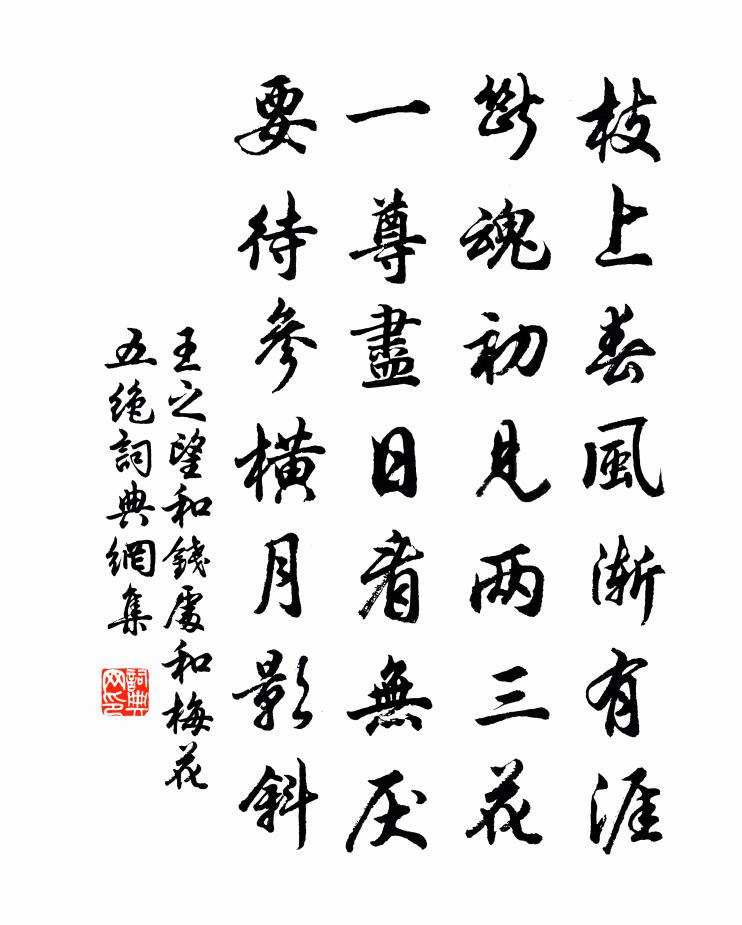 枝上春風漸有涯
斷魂初見两三花
一尊盡日看無厌
要待參橫月影斜
王之望和錢處和梅花
五絶詞典網集
詞典网印